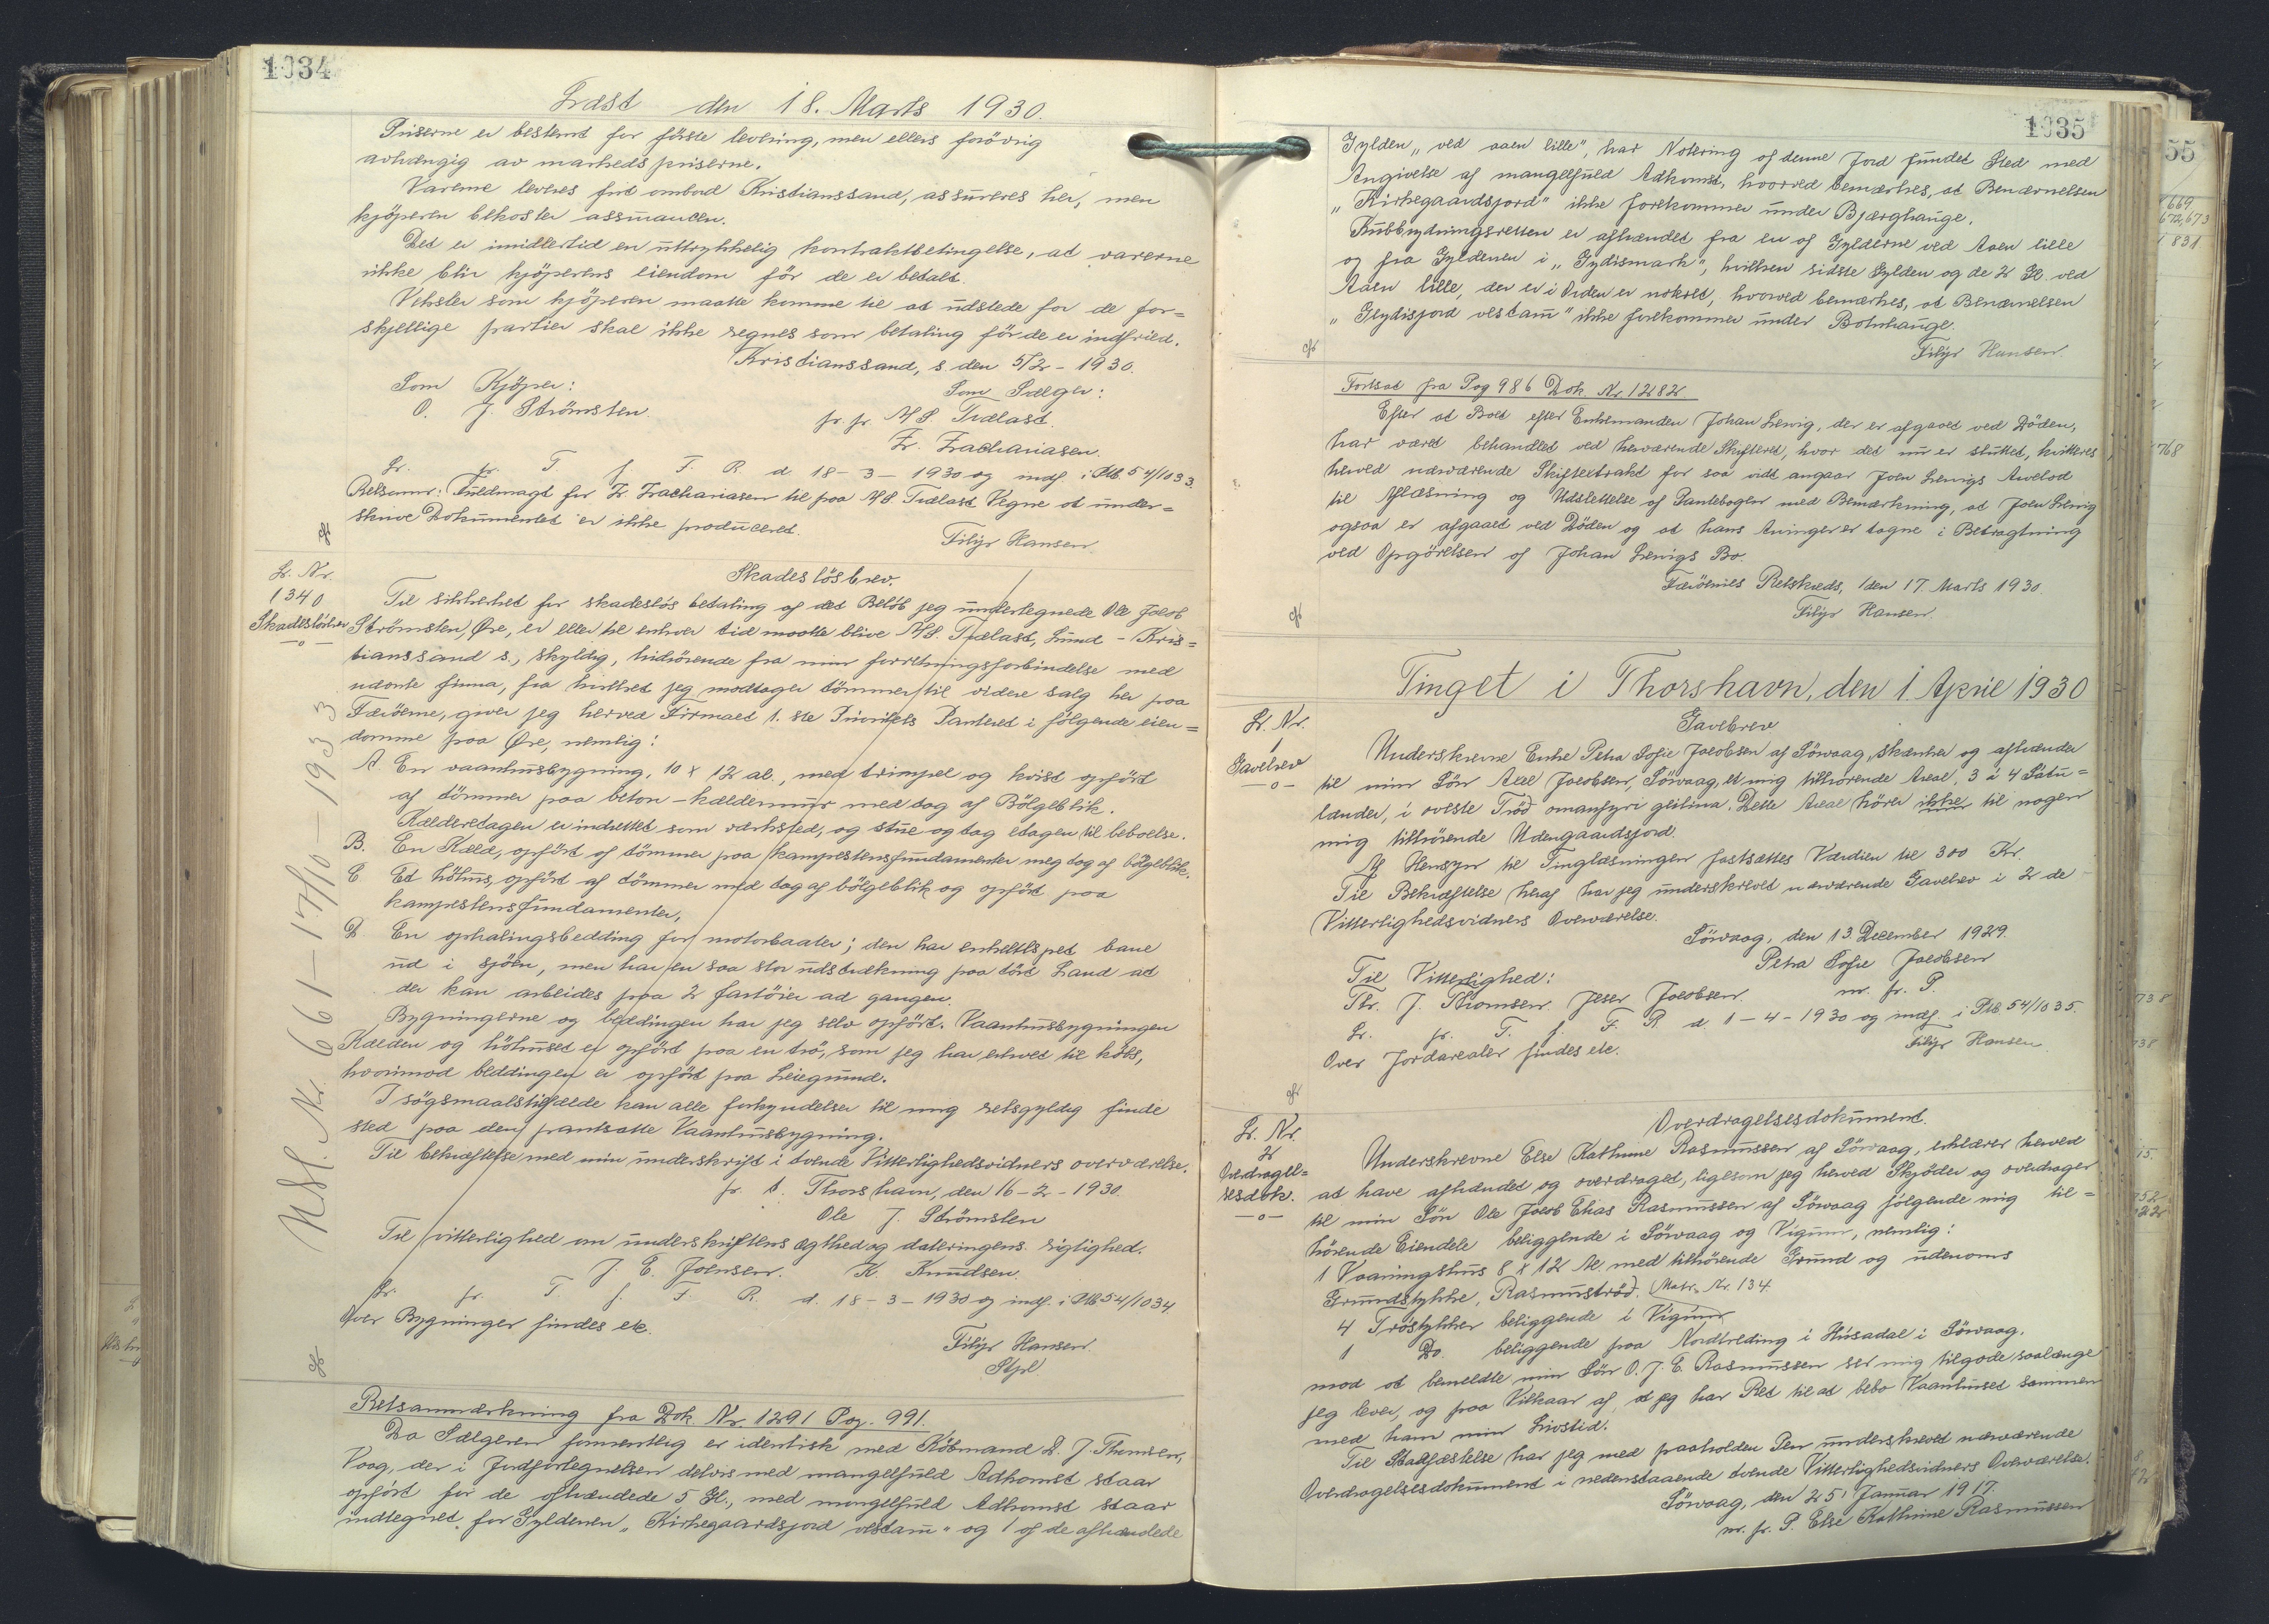 1034
Læst den 18. Marts 1930.
Priserne er bestemt for förste levering, men ellers forövrig
avhængig av markedspriserne.
Varerne leveres frit ombord Kristianssand, assureres her, men
kjöperen bekoster assurancen.
Det er imidlertid en uttrykkelig kontraktbetingelse, at varerne
ikke blir kjöperens eiendom för de er betalt.
Veksler som kjöperen maatte komme til at udstede for de for=
skjellige partier skal ikke regnes som betaling för de er indfried.
Kristianssand, s. den 5/2 - 1930.
Som Kjöper: Som Sælger:
O. J. Strömsten. pr. pr. A/S. Trælast.
Zr. Zachariasen.
Lr. fr. T. f. F. R. d. 18-3-1930 og indf. i Ptb. 54/1033.
Retsanm: Fuldmagt for Zr. Zachariasen til paa A/S Trælast Vegne at under=
skrive Dokumentet er ikke produceret.
Filip Hansen.
Skadeslösbrev.
Lr. Nr.
1340.
Skadeslösbrev
—o—
Til sikkerhet for skadeslös betaling af det Belöb jeg undertegnede Ole Jacob
Strömsten, Öre, er eller til enhver tid maatte blive A/S. Trælast, Lund - Kris=
tianssand s., skyldig, hidrörende fra min forretningsforbindelse med
nævnte firma, fra hvilket jeg modtager tömmer til videre salg her paa
Færöerne, giver jeg herved Firmaet 1. ste Prioritets Panteret i fölgende eien=
domme paa Öre, nemlig:
A. En vaanhusbygning, 10 x 12 al., med trimpel og kvist opfört
af tömmer paa beton-kældermur med tag af Bölgeblik.
Kælderetagen er indrettet som værksted, og stue og tag etagen til beboelse.
B. En Kæld, opfört af tömmer paa kampestensfundamenter meg tag af bölgeblik.
C Et höhus, opfört af tömmer med tag af bölgeblik og opfört paa
kampestensfundamenter,
D. En ophalingsbedding for motorbaater; den har enkeltspet bane
ud i sjöen, men har en saa stor udstrækning paa tört Land at
der kan arbeides paa 2 fartöier ad gangen.
Bygningerne og beddingen har jeg selv opfört. Vaanhusbygningen
Kælden og höhuset er opfört paa en trö, som jeg har erhvet til köbs,
hvorimod beddingen er opfört paa Leiegrund.
I sögsmaalstilfælde kan alle forkyndelser til mig retsgyldig finde
sted paa den pantsatte Vaanhusbygning.
Til bekræftelse med min underskrift i tvende Vitterlighedsvidners overværelse.
pr. t. Thorshavn, den 16-2-1930.
Ole J. Strömsten
Til vitterlighed om underskriftens ægthed og dateringens rigtighed.
J. E. Joensen. K. Knudsen.
Lr. fr. T f. F. R. d. 18-3-1930 og indf. i Ptb 54/1034
Over Bygninger findes etc.
Filip Hansen.
Udsl. Nr. 661 - 17/10 - 1933
Retsanmærkning fra Dok. Nr. 1291 Pag. 991.
Da Sælgeren formentlig er identisk med Köbmand D. J. Thomsen,
Vaag, der i Jordfortegnelsen delvis med mangelfuld Adkomst staar
opfört for de afhændede 5 Gl., med mangelfuld Adkomst staar
indtegnet for Gyldenen „Kirkegaardsjord vestam" og 1 af de afhændede
1035
Gylden „ved aaen lille", har Notering af denne Jord fundet Sted med
Angivelse af mangelfuld Adkomst, hvorved bemærkes, at Benævnelsen
„Kirkegaardsjord" ikke forekommer under Bjærghauge.
Kubbrydningsretten er afhændet fra en af Gylderne ved Aaen lille
og fra Gyldenen i „Gydismark", hvilken sidste Gylden og de 2 Gl. ved
Aaen lille, der er i Orden er noteret, hvorved bemærkes, at Benævnelsen
„Gydisjord vestam" ikke forekommer under Botnhauge.
Filip Hansen.
Fortsat fra Pag 986 Dok. Nr. 1282
Efter at Boet efter Enkemanden Johan Lervig, der er afgaaet ved Döden,
har været behandlet ved herværende Skifteret, hvor det nu er sluttet, kvitteres
herved nærværende Skifteextrakt for saa vidt angaar Joen Lervigs Arvelod
til Aflæsning og Udslettelse af Pantebogen med Bemærkning, at Joen Lervig
ogsaa er afgaaet ved Döden og at hans Arvinger er tagne i Betragtning
ved Opgörelsen af Johan Lervigs Bo.
Færöernes Retskreds, den 17. Marts 1930.
Filip Hansen.
Tinget i Thorshavn, den 1. April 1930
Gavebrev
Lr. Nr.
1
Gavebrev
—o—
Underskrevne Enke Petra Sofie Jacobsen af Sörvaag, skænker og afhænder
til min Sön Axel Jacobsen, Sörvaag, et mig tilhörende Areal, 3 à 4 Sátu=
lander, i överste Tröð omanfyri geilina. Dette Areal hörer ikke til nogen
mig tilhörende Udengaardsjord.
Af Hensyn til Tinglæsningen fastsættes Værdien til 300 Kr.
Til Bekræftelse heraf har jeg underskrevet nærværende Gavebrev i 2 de
Vitterlighedsvidners Overværelse.
Sörvaag, den 13. December 1929.
Petra Sofie Jacobsen
Til Vitterlighed: m. f. P.
Thr. J. Thomsen. Jeser Jacobsen.
Lr. fr. T. f. F. R. d. 1-4-1930 og indf. i Ptb. 54/1035.
Over Jordarealer findes etc. Filip Hansen
Overdragelsesdokument.
Lr. Nr.
2
Overdragel=
sesdok.
—o—
Underskrevne Else Kathrine Rasmussen af Sörvaag, erklærer herved
at have afhændet og overdraget, ligesom jeg herved Skjöder og overdrager
til min Sön Ole Jacob Elias Rasmussen af Sörvaag fölgende mig til=
hörende Eiendele beliggende i Sörvaag og Vigum, nemlig:
1 Vaaningshus 8 x 12 Al. med tilhörende Grund og udenoms
Grundstykke, Rasmuströð. Matr. Nr. 134.
4 Tröstykker beliggende i Vigum
1 Do. beliggende paa Nordtreding i Húsadal i Sörvaag.
mod at bemeldte min Sön O. J. E. Rasmussen ser mig tilgode saalænge
jeg lever, og paa Vilkaar af, at jeg har Ret til at bebo Vaanhuset sammen
med ham min Livstid.
Til Stadfæstelse har jeg med paaholden Pen underskrevet nærværende
Overdragelsesdokument i nedenstaaende tvende Vitterlighedsvidners Overværelse.
Sörvaag, den 25. Januar 1917.
m. f. P. Else Kathrine Rasmussen
55